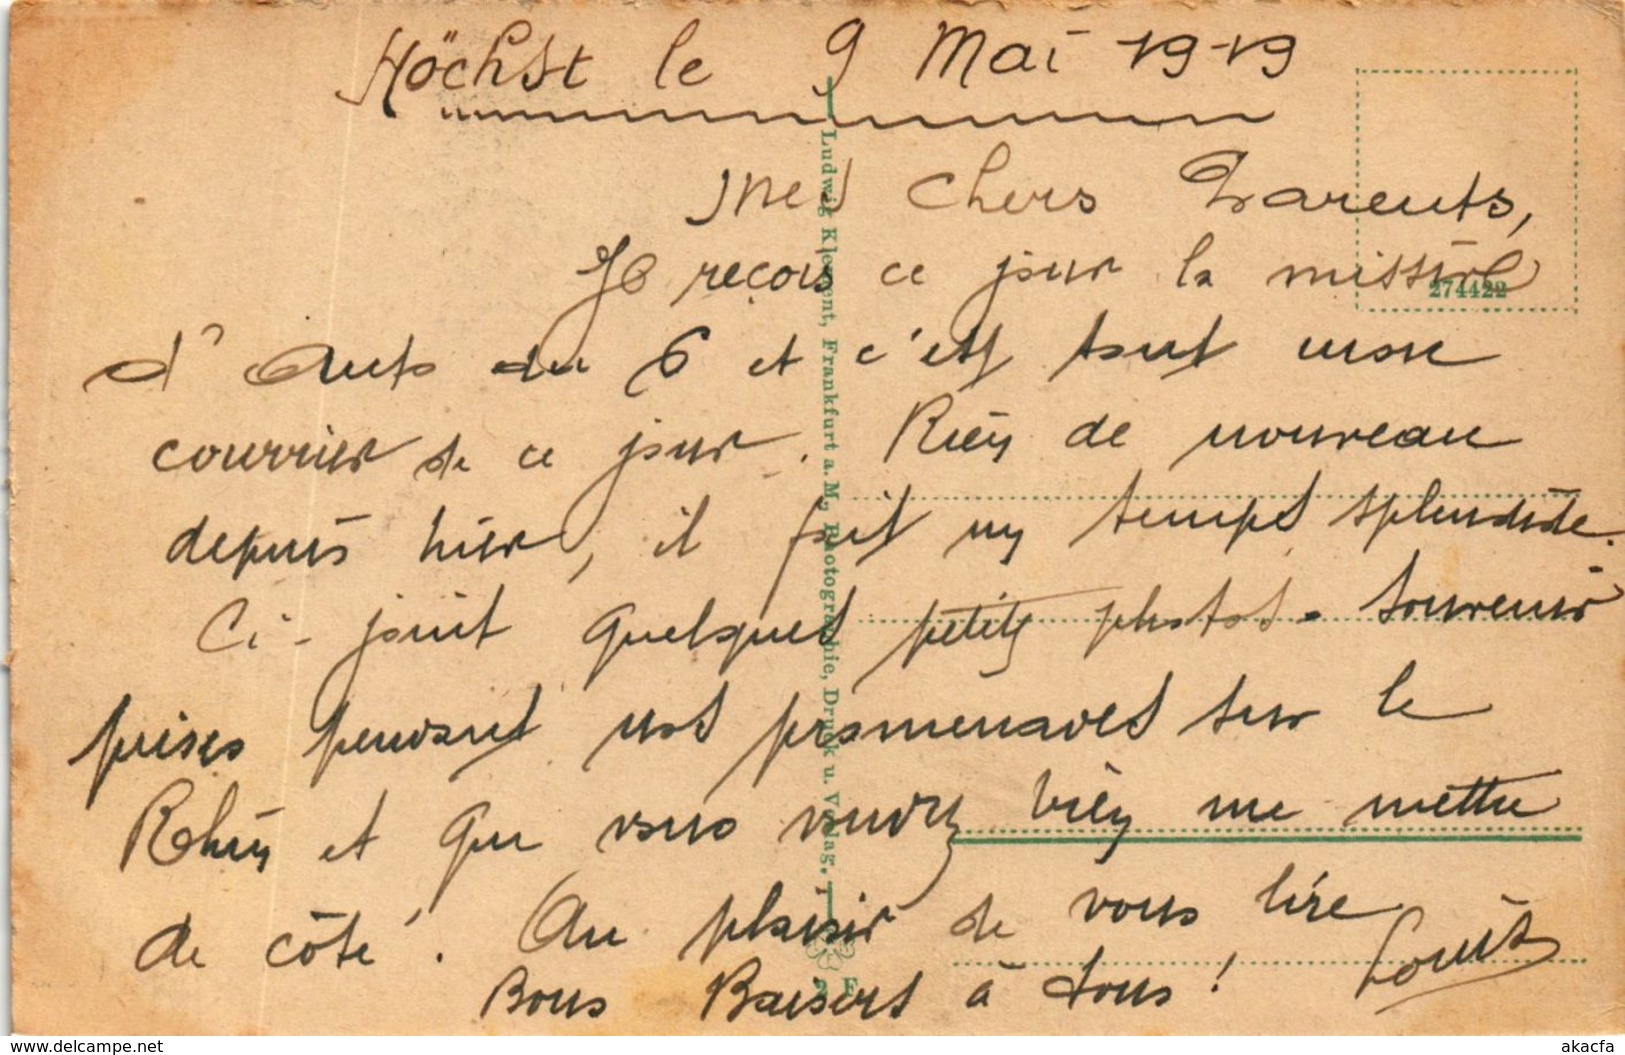 Höchst le 9 Mai 1919
Mes Chers Parents,
Je reçois ce jour la missive
d'Auts du 6 et c'est tout mon
courrier de ce jour. Rien de nouveau
depuis hier, il fait un temps splendide.
Ci-joint quelques petits photos-souvenir
prises pendant nos promenades sur le
Rhin et que vous voudrez bien me mettre
de côté. Au plaisir de vous lire
Bons Baisers à tous! Louis
Ludwig Klement, Frankfurt a. M., Photographie, Druck u. Verlag.
274422
www.delcampe.net
akacfa